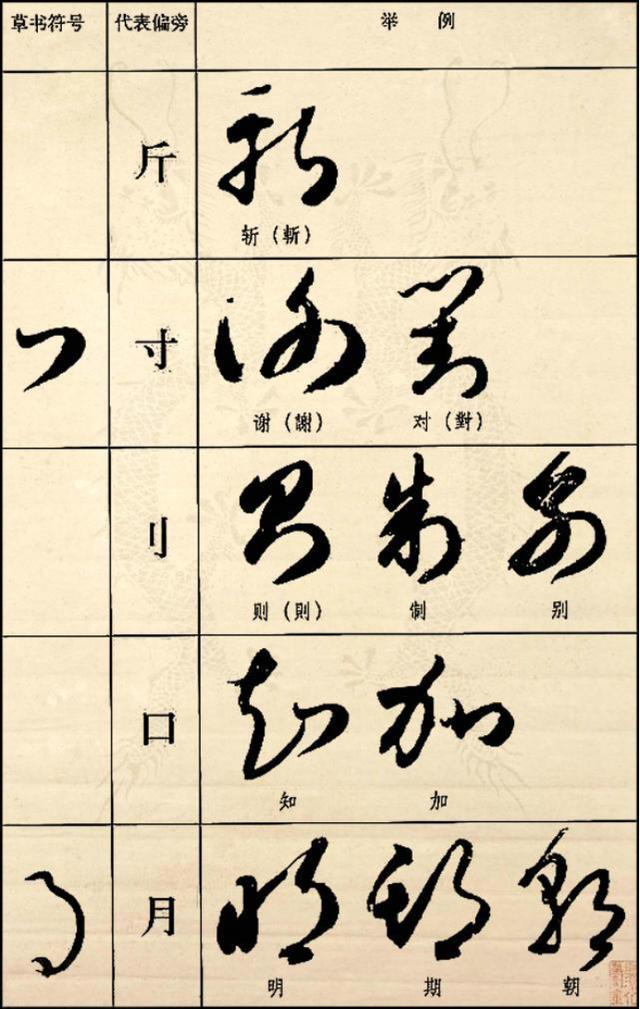 草书符号 代表偏旁 举例
斤
斩（斬）
寸
谢（謝） 对（對）
刂
则（則） 制 别
口
知 加
月
明 期 朝